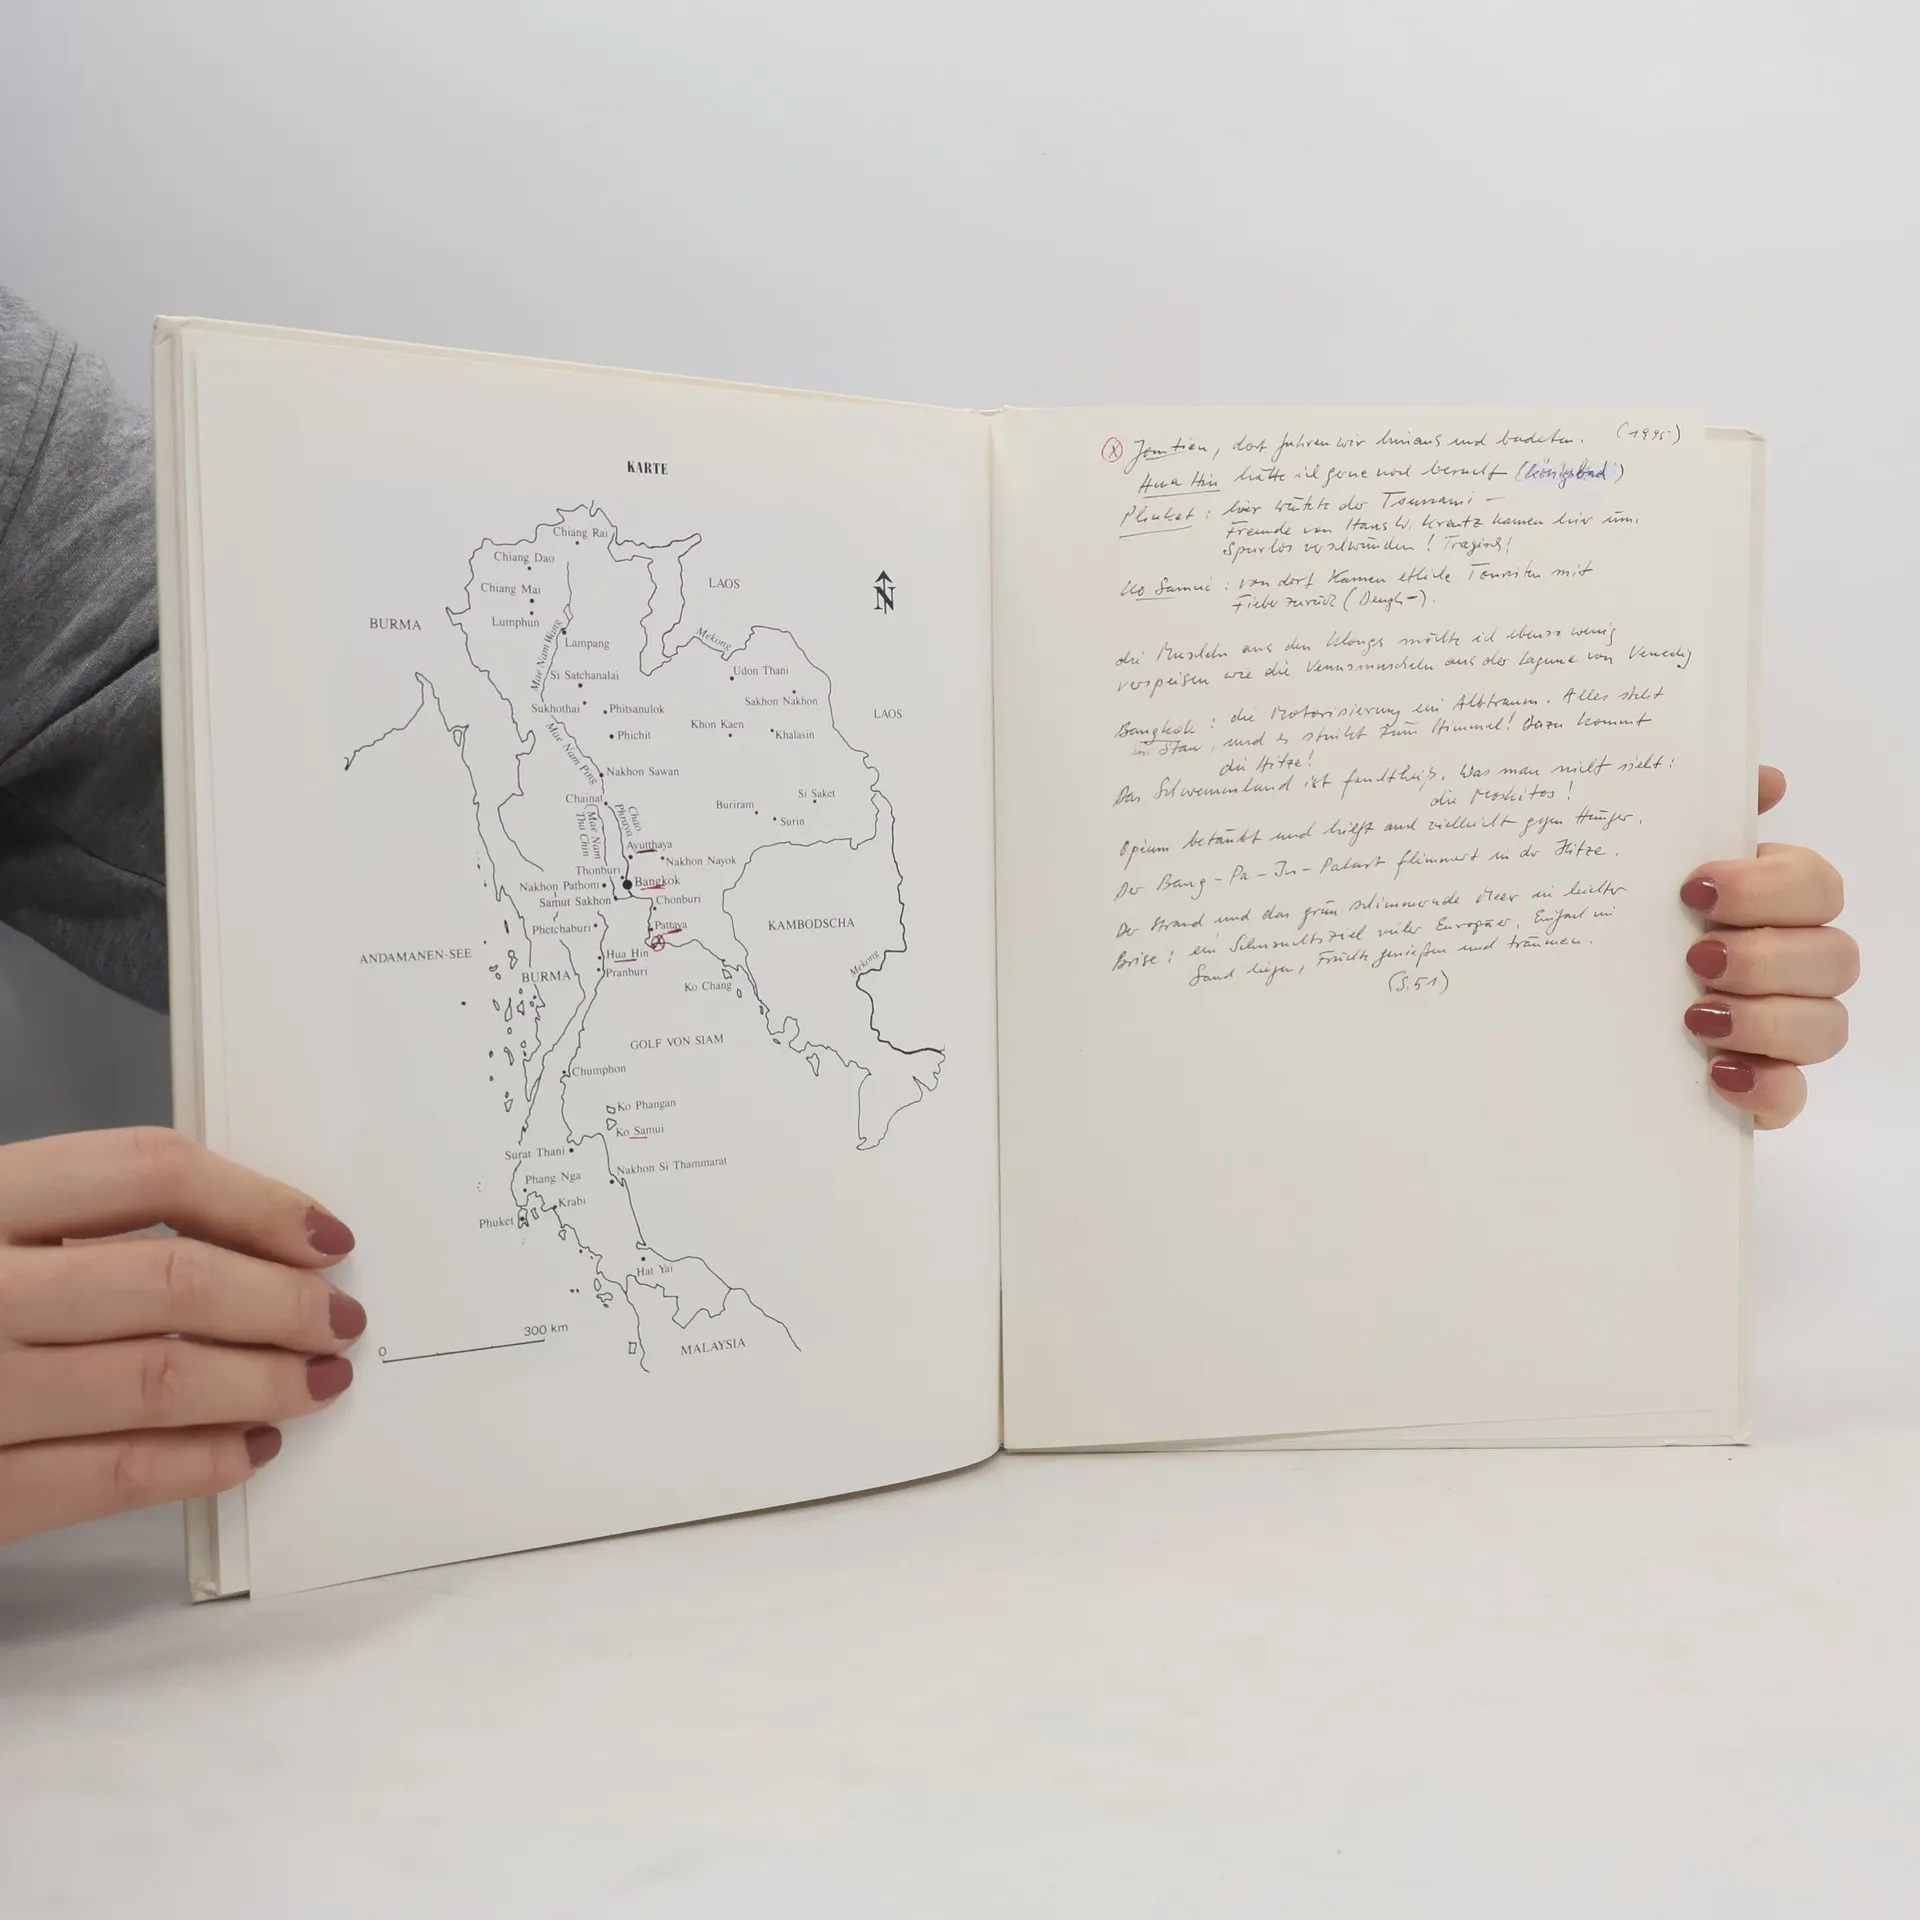 KARTE
Chiang Rai
Chiang Dao
LAOS
Chiang Mai
N
BURMA
Lumphun
Mae Nam Wang
Lampang
Mekong
Si Satchanalai
Udon Thani
Sakhon Nakhon
Sukhothai
Phitsanulok
LAOS
Khon Kaen
Phichit
Khalasin
Mae Nam Ping
Nakhon Sawan
Chainat
Si Saket
Buriram
Surin
Chao Phraya
Mae Nam
Tha Chin
Ayutthaya
Nakhon Nayok
Thonburi
Nakhon Pathom
Bangkok
Samut Sakhon
Chonburi
Phetchaburi
Pattaya
KAMBODSCHA
X
ANDAMANEN-SEE
Hua Hin
BURMA
Pranburi
Mekong
Ko Chang
GOLF VON SIAM
Chumphon
Ko Phangan
Ko Samui
Surat Thani
Nakhon Si Thammarat
Phang Nga
Krabi
Phuket
Hat Yai
0
300 km
MALAYSIA
X Jomtien, dort fuhren wir hinaus und badeten. (1995)
Hua Hin hätte ich gerne noch besucht (Königsbad)
Phuket: hier wütete der Tsunami –
Freunde von Hans W. Kreutz kamen hier um.
Spurlos verschwunden! Tragisch!
Ko Samui: von dort kamen etliche Touristen mit
Fieber zurück (Dengh-).
die Muscheln aus den Klongs möchte ich ebenso wenig
verspeisen wie die Venusmuscheln aus der Lagune von Venedig
Bangkok: die Motorisierung ein Albtraum. Alles steht
im Stau, und es stinkt zum Himmel! Dazu kommt
die Hitze!
Das Schwemmland ist feuchtheiß. Was man nicht sieht:
die Moskitos!
Opium betäubt und hilft auch vielleicht gegen Hunger.
Der Bang-Pa-In-Palast flimmert in der Hitze.
Der Strand und das grün schimmernde Meer in leichter
Brise: ein Sehnsuchtsziel vieler Europäer. Einfach im
Sand liegen, Früchte genießen und träumen.
(S.51)